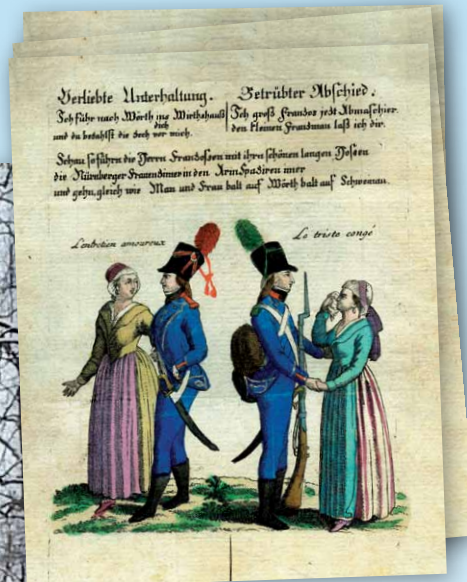 Verliebte Unterhaltung.
Ich führ nach Wörth ins Wirthshauß
dich
und da bezahlst die Zech vor mich.
Betrübter Abschied.
Ich groß Franzos jezt Abmaschier.
den kleinen Franzman laß ich dir.
Schau so führn die Herrn Franzosen mit ihrn schönen langen Hosen
die Nürnberger Frauenzimer in den Arm Spaziren imer
und gehn, gleich wie Man und Frau balt auf Wörth balt auf Schweinau.
L'entretien amoureux
Le triste congé